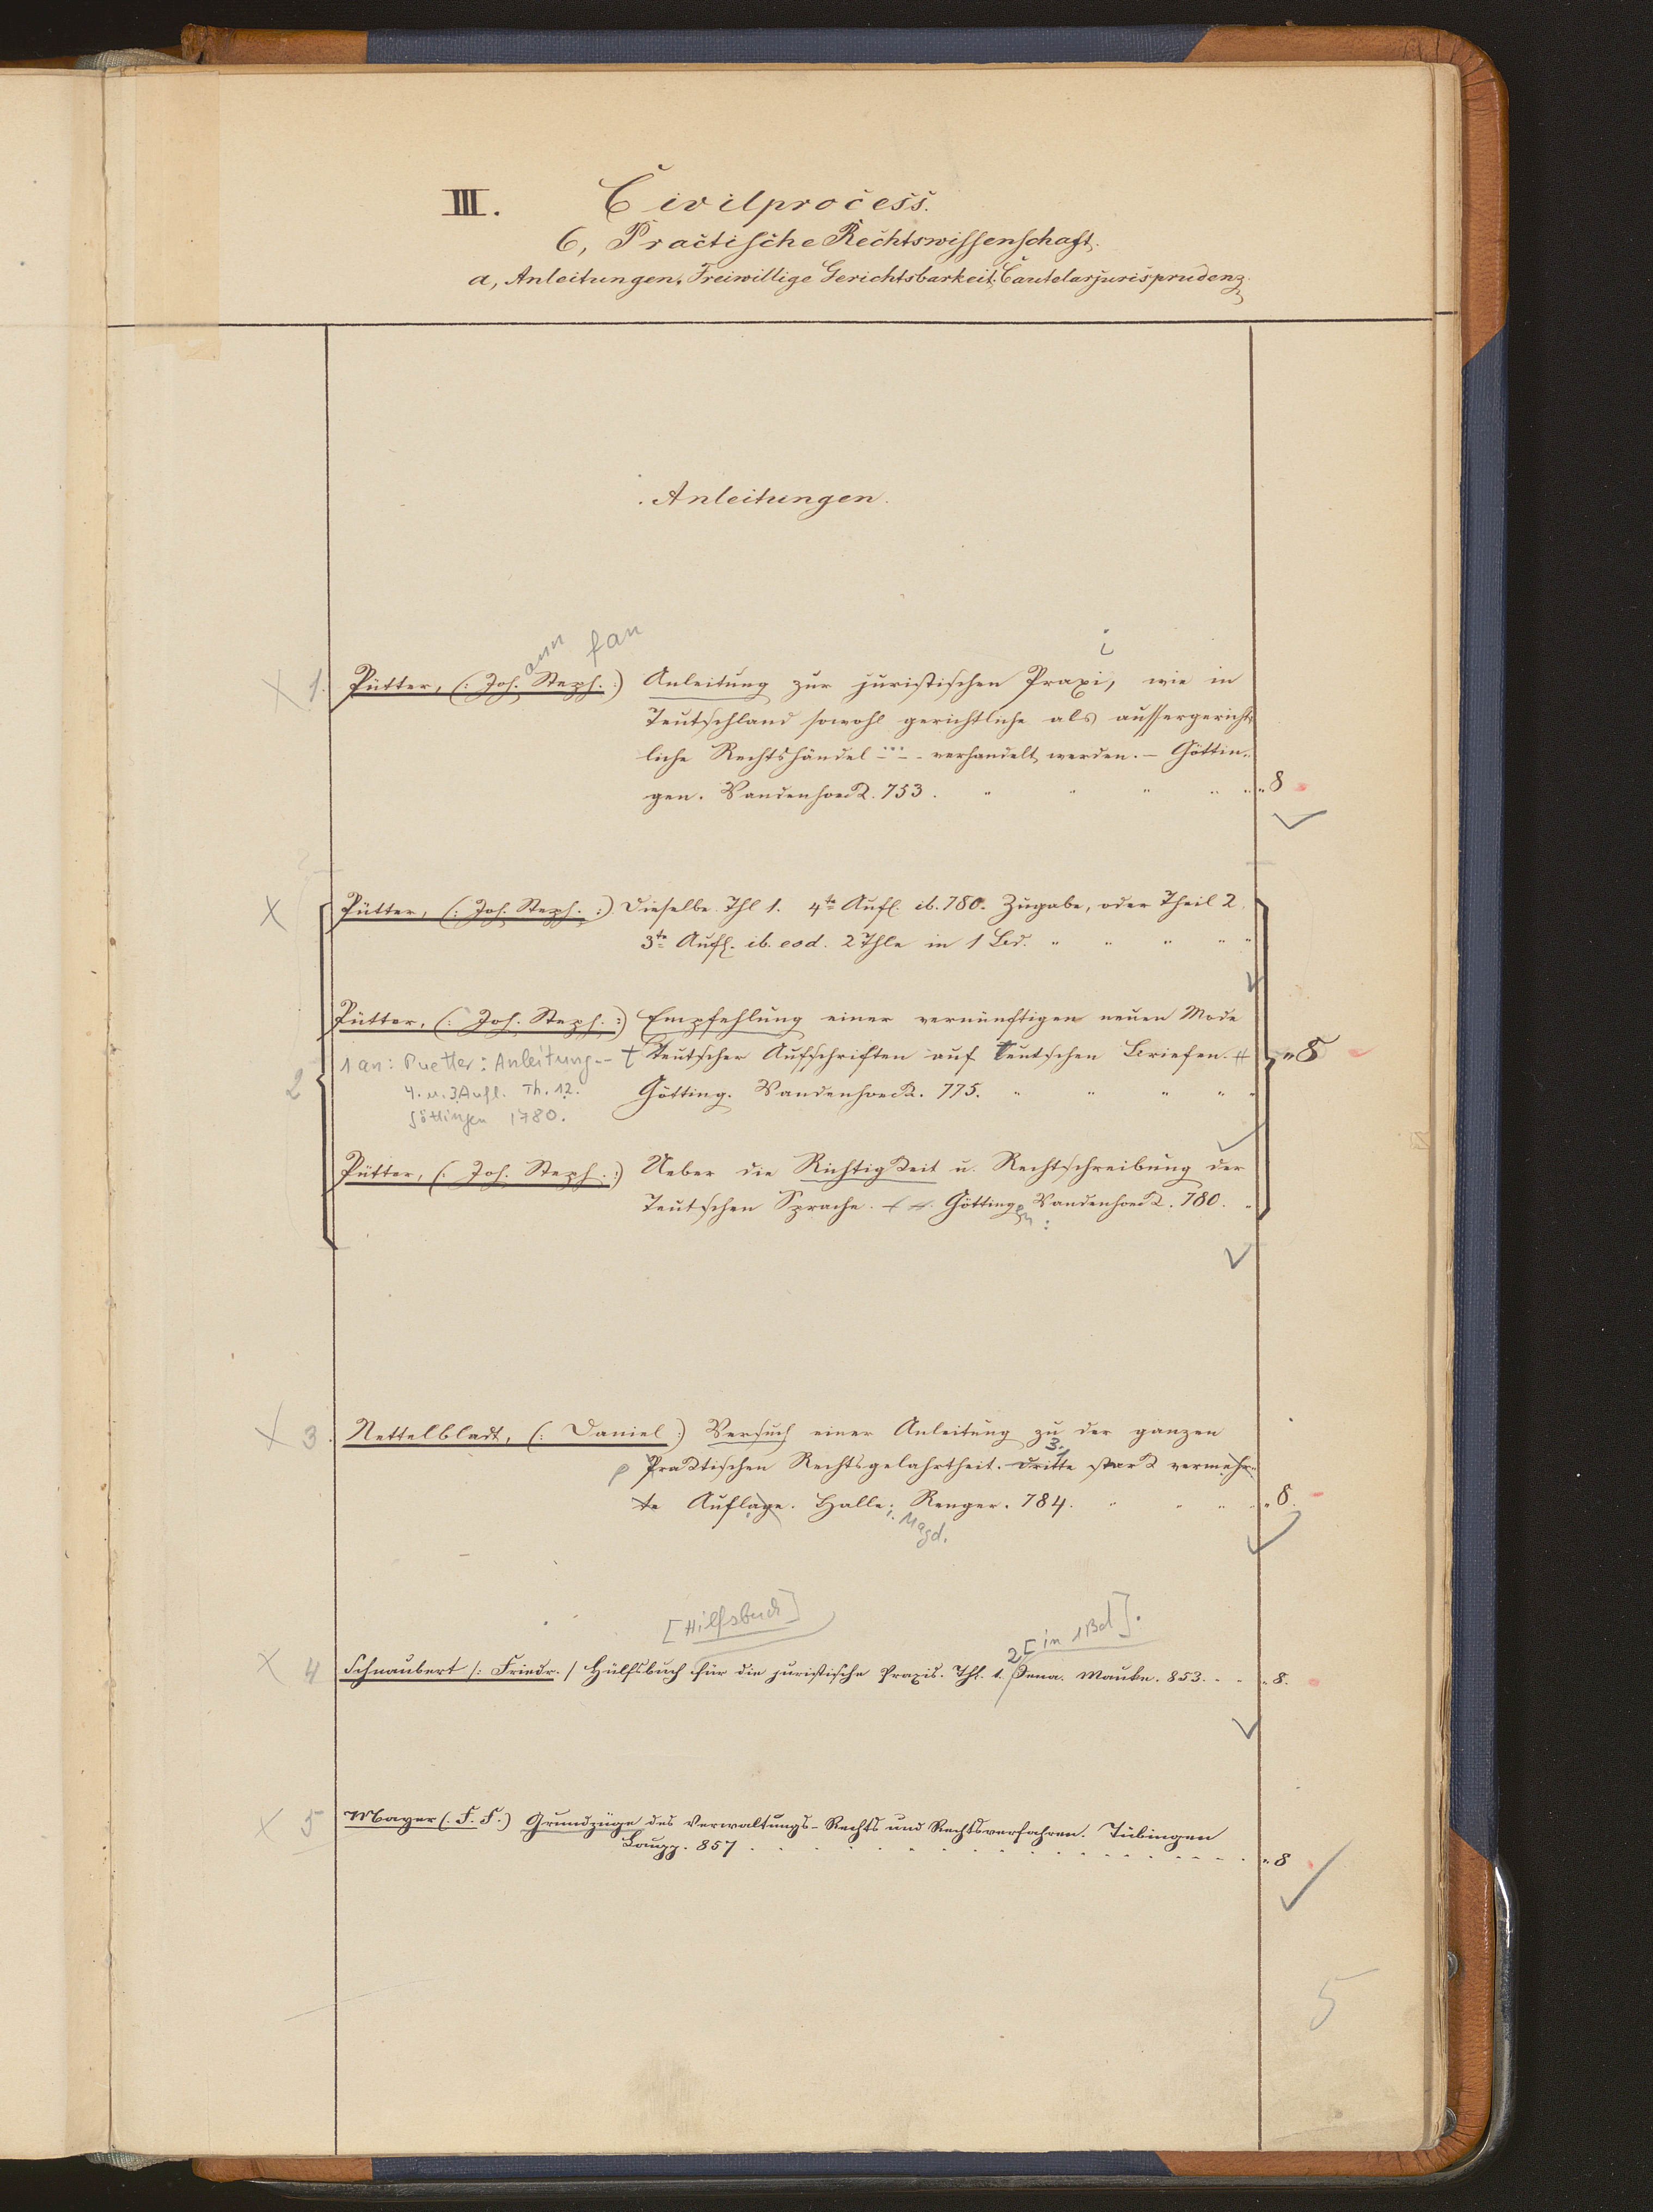 III. Civilprocess.
6, Practische Rechtswissenschaft.
a, Anleitungen. Freiwillige Gerichtsbarkeit. Cautelarjurisprudenz.
Anleitungen.
ann fan i
1. Pütter, (: Joh. Steph. :) Anleitung zur juristischen Praxi, wie in
Teutschland sowohl gerichtliche als aussergericht-
liche Rechtshändel ... verhandelt werden. – Göttin-
gen. Vandenhoeck. 753. " " " " " 8
Pütter, (: Joh. Steph. :) Dieselbe. Thl 1. 4te Aufl. ib. 780. Zugabe, oder Theil 2.
3te Aufl. ib. eod. 2 Thle in 1 Bd. " " " " "
Pütter, (: Joh. Steph. :) Empfehlung einer vernünftigen neuen Mode
1 an: Puetter: Anleitung -- t Teutscher Aufschriften auf Teutschen Briefen. # " 8
2 4. u. 3. Aufl. Th. 1.2. Götting. Vandenhoeck. 775. " " " " "
Göttingen 1780.
Pütter, (: Joh. Steph. :) Ueber die Richtigkeit u. Rechtschreibung der
Teutschen Sprache. Götting. Vandenhoeck. 780. "
en :
3. Nettelbladt, (: Daniel :) Versuch einer Anleitung zu der ganzen
3.
p Praktischen Rechtsgelahrtheit. Dritte stark vermehr-
te Auflage. Halle. Renger. 784. " " " " " 8.
i. Magd.
[Hilfsbuch] 2 [in 1 Bd].
4 Schnaubert /: Friedr. / Hülfsbuch für die juristische Praxis. Thl. 1. Jena. Mauke. 853. " " " 8.
5 Mayer (. F. F.) Grundzüge des Verwaltungs-Rechts und Rechtsverfahren. Tübingen
Laupp. 857 . . . . . . . . . . " 8
5